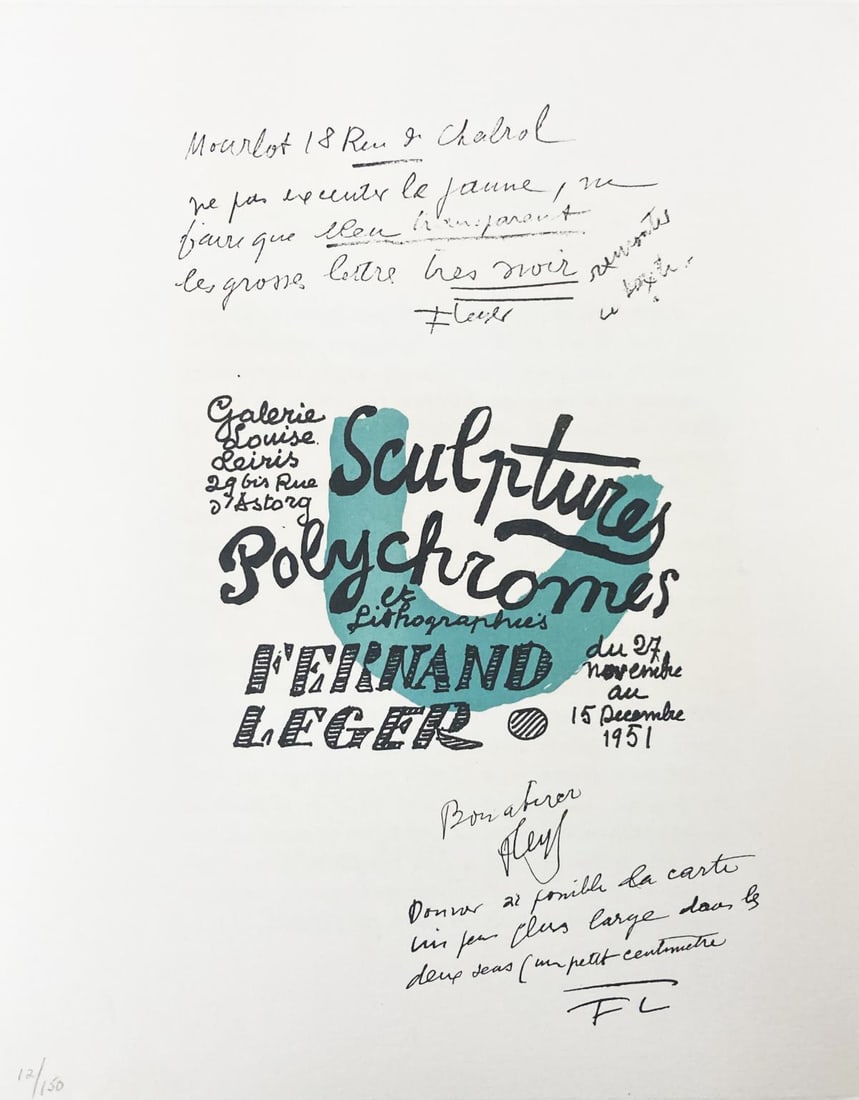 Mourlot 18 Rue de Chabrol
ne pas executer le jaune, ne
faire que bleu transparent
les grosses lettre très noir
remonter
ce texte.
FLeger
Galerie
Louise
Leiris
29 bis Rue
d'Astorg
Sculptures
Polychromes
et
Lithographies
FERNAND
LEGER
du 27
novembre
au
15 Decembre
1951
Bon a tirer
FLeger
Donner si possible la carte
un peu plus large dans les
deux sens (un petit centimetre
FL
12/150